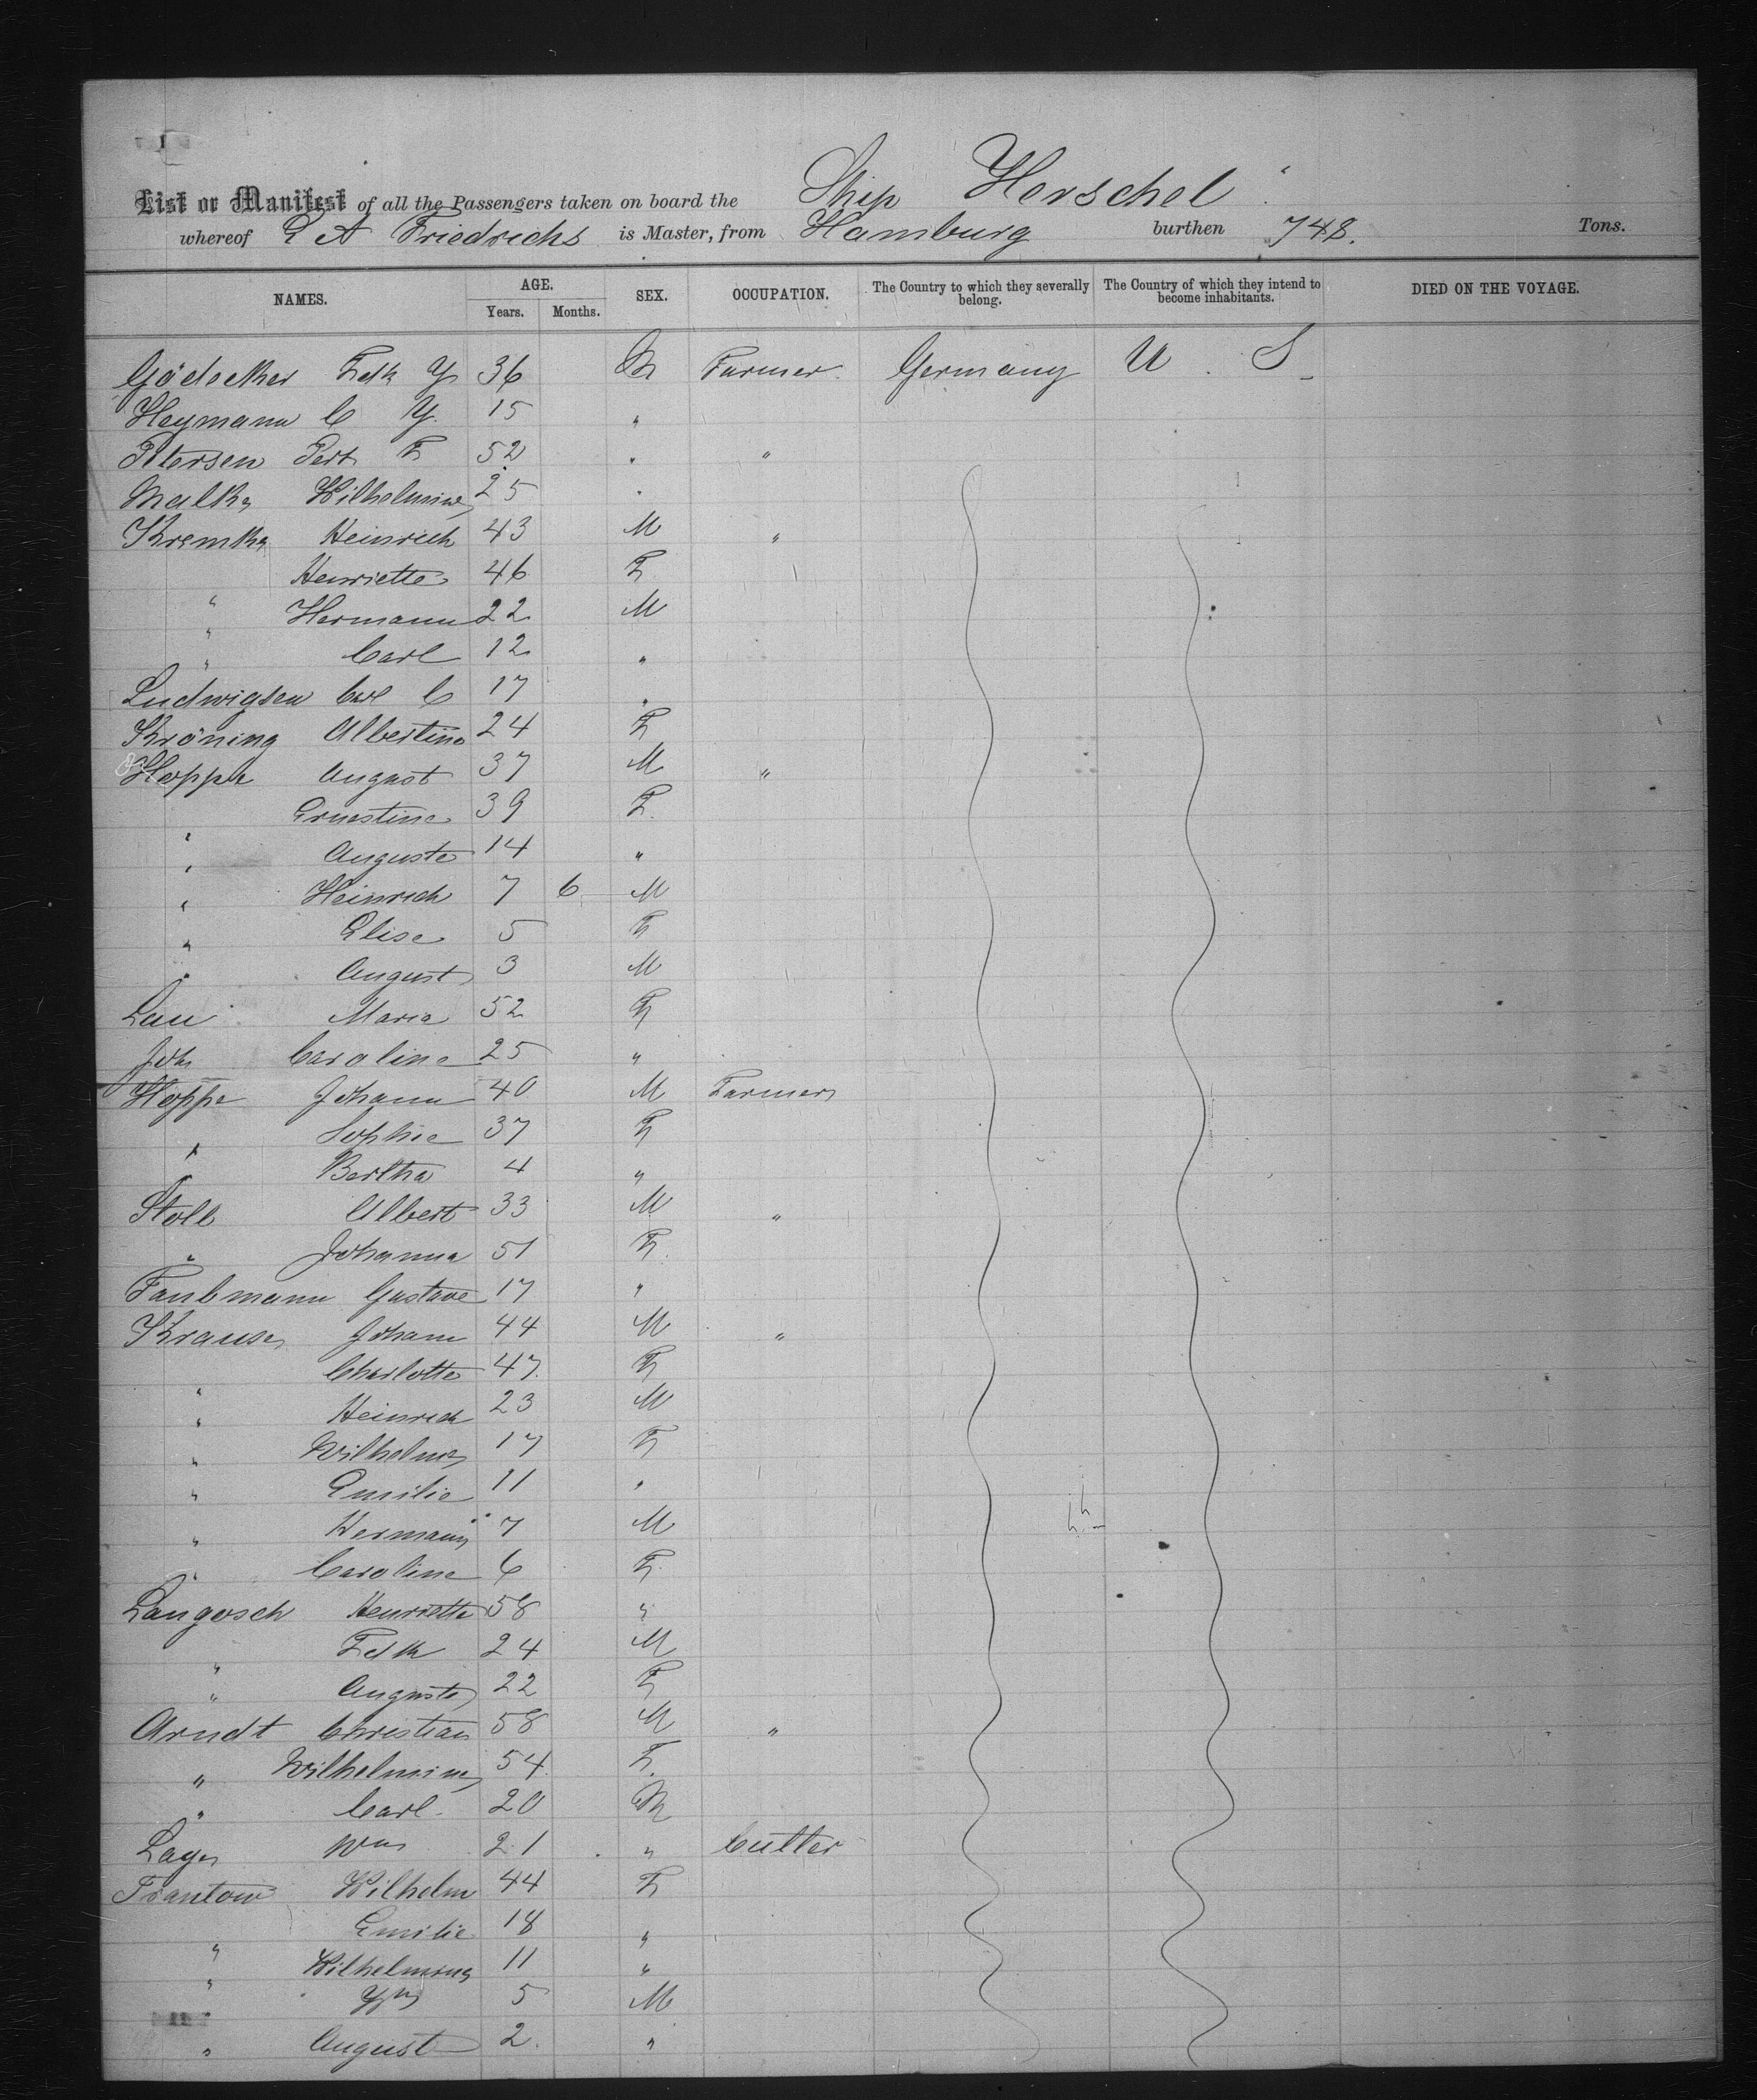 List or Manifest of all the Passengers taken on board the Ship Herschel
whereof E A Friedrichs is Master, from Hamburg burthen 748. Tons.
NAMES. AGE. Years. Months. SEX. OCCUPATION. The Country to which they severally belong. The Country of which they intend to become inhabitants. DIED ON THE VOYAGE.
Gödecker Fdk Y 36 M Farmer. Germany U. S
Heymann C Y. 15 "
Petersen F 52 " "
Malka Wilhelmine 25 "
Kremka Heinrich 43 M "
" Henriette 46 F
" Hermann 22 M
" Carl 12 "
Ludwigsen Carl C 17 "
Kröning Albertine 24 F
Hoppe August 37 M "
" Ernestine 39 F.
" Auguste 14 "
" Heinrich 7 6 M
" Elise 5 F
" August 3 M
Lau Maria 52 F
Joh Caroline 25 "
Hoppe Johann 40 M Farmer
" Sophie 37 F
" Bertha 4 "
Stoll Albert 33 M "
" Johanna 51 F.
Faubmann Gustave 17 "
Krause Johann 44 M "
" Charlotte 47. F
" Heinrich 23 M
" Wilhelm 17 F
" Emilie 11 "
" Hermann 7 M
" Caroline 6 F.
Langosch Henriette 58 "
" Fdk 24 M
" Auguste 22 F
Arndt Christian 58 M "
" Wilhelmine 54. F.
" Carl. 20 M
Lage Wm 21 " Cutter
Trantow Wilhelm 44 F
" Emilie 18 "
" Wilhelmine 11 "
" Wm 5 M
" August 2. "